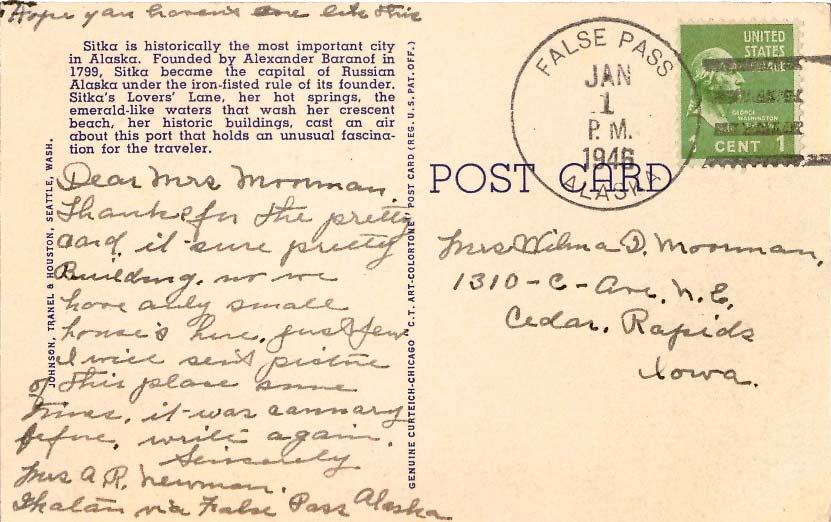 Hope you haven't one like this
Sitka is historically the most important city
in Alaska. Founded by Alexander Baranof in
1799, Sitka became the capital of Russian
Alaska under the iron-fisted rule of its founder.
Sitka's Lovers' Lane, her hot springs, the
emerald-like waters that wash her crescent
beach, her historic buildings, cast an air
about this port that holds an unusual fascina-
tion for the traveler.
Dear Mrs Moorman.
Thanks for the pretty
card, it sure pretty
Building. no we
have only small
house's here. just few
I will sent pictue
of this place some
times. it was cannary
before, write again.
Sincerely
Mrs A. R. Newman.
Ikatan via False Pass Alaska
JOHNSON, TRANEL & HOUSTON, SEATTLE, WASH.
GENUINE CURTEICH-CHICAGO "C.T. ART-COLORTONE" POST CARD (REG. U.S. PAT. OFF.)
POST CARD
FALSE PASS
JAN
1
P.M.
1946
ALASKA
UNITED
STATES
GEORGE
WASHINGTON
1 CENT 1
Mrs Wilma D. Moorman,
1310-C-Ave. N.E.
Cedar. Rapids
Iowa.